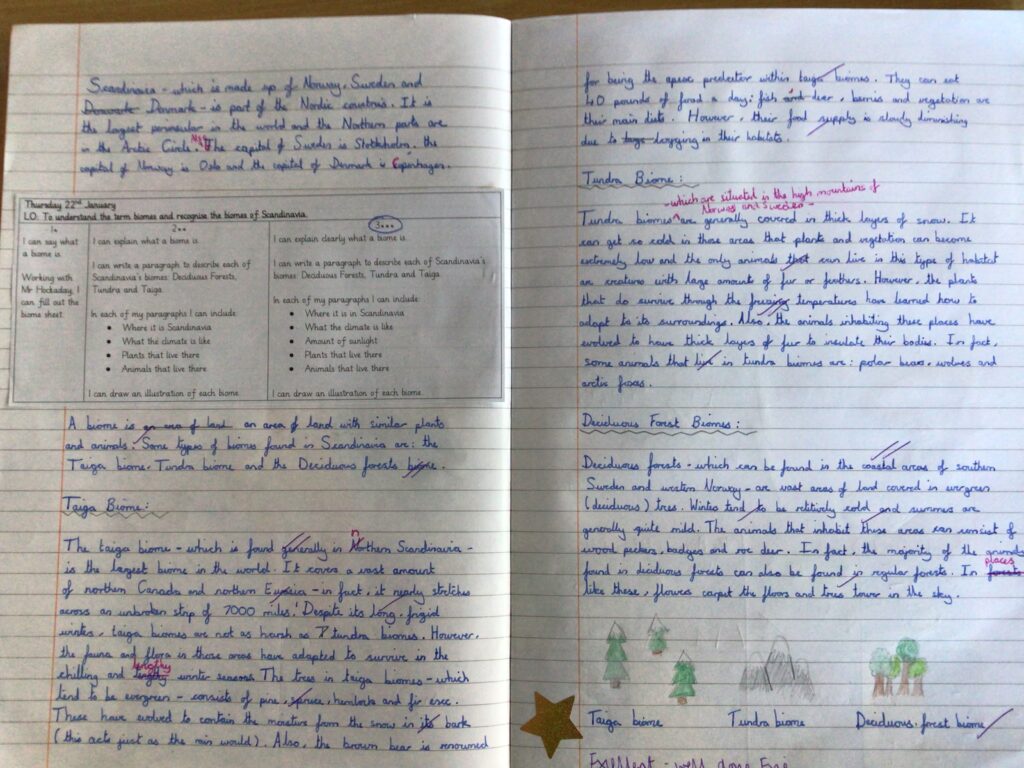 Scandinavia - which is made up of Norway, Sweden and
Denmark - is part of the Nordic countries. It is
the largest peninsular in the world and the Northern parts are
in the Arctic Circle. Also, The capital of Sweden is Stokholm, the
capital of Norway is Oslo and the capital of Denmark is Copenhagen.
Thursday 22nd January
LO: To understand the term biomes and recognise the biomes of Scandinavia.
1*
I can say what
a biome is.
Working with
Mr Hockaday, I
can fill out the
biome sheet.
2**
I can explain what a biome is.
I can write a paragraph to describe each of
Scandinavia's biomes: Deciduous Forests,
Tundra and Taiga.
In each of my paragraphs I can include:
• Where it is Scandinavia
• What the climate is like
• Plants that live there
• Animals that live there
I can draw an illustration of each biome.
3***
I can explain clearly what a biome is.
I can write a paragraph to describe each of Scandinavia's
biomes: Deciduous Forests, Tundra and Taiga.
In each of my paragraphs I can include:
• Where it is in Scandinavia
• What the climate is like
• Amount of sunlight
• Plants that live there
• Animals that live there
I can draw an illustration of each biome.
A biome is an area of land an area of land with similar plants
and animals. Some types of biomes found in Scandinavia are: the
Taiga biome, Tundra biome and the Deciduous forests biome.
Taiga Biome:
The taiga biome - which is found generally in northern Scandinavia -
is the largest biome in the world. It covers a vast amount
of northern Canada and northern - in fact, it nearly stretches
across an unbroken strip of 7000 miles! Despite its long, frigid
winter, taiga biomes are not as harsh as tundra biomes. However,
the fauna and flora in those areas have adapted to survive in the
chilling and lengthy winter seasons. The trees in taiga biomes - which
tend to be evergreen - consists of pine, spruce, hemlocks and fir
These have evolved to contain the moisture from the snow in its bark
(this acts just as the rain would). Also, the brown bear is renowned
for being the apex predator within taiga biomes. They can eat
40 pounds of food a day: fish and deer, berries and vegetation are
their main diets. However, their food supply is slowly diminishing
due to in their habitats.
Tundra Biome:
- which are situated in the high mountains of
Norway and Sweden -
Tundra biomes are generally covered in thick layers of snow. It
can get so cold in those areas that plants and vegetation can become
extremely low and the only animals that can live in this type of habitat
are creatures with large amount of fur or feathers. However, the plants
that do survive through the freezing temperatures have learned how to
adapt to its surroundings. Also, the animals inhabiting these places have
evolved to have thick layers of fur to insulate their bodies. In fact,
some animals that live in tundra biomes are: polar bears, wolves and
arctic foxes.
Deciduous Forest Biomes:
Deciduous forests - which can be found in the coastal areas of southern
Sweden and western Norway - are vast areas of land covered in evergreen
(deciduous) trees. Winters tend to be relitively cold and summers are
generally quite mild. The animals that inhabit these areas can consist of
wood peckers, badgers and roe deer. In fact, the majority of the animals
found in deciduous forests can also be found in regular forests. In forests places
like these, flowers carpet the floors and trees tower in the sky.
Taiga biome
Tundra biome
Deciduous forest biome
Excellent - well done